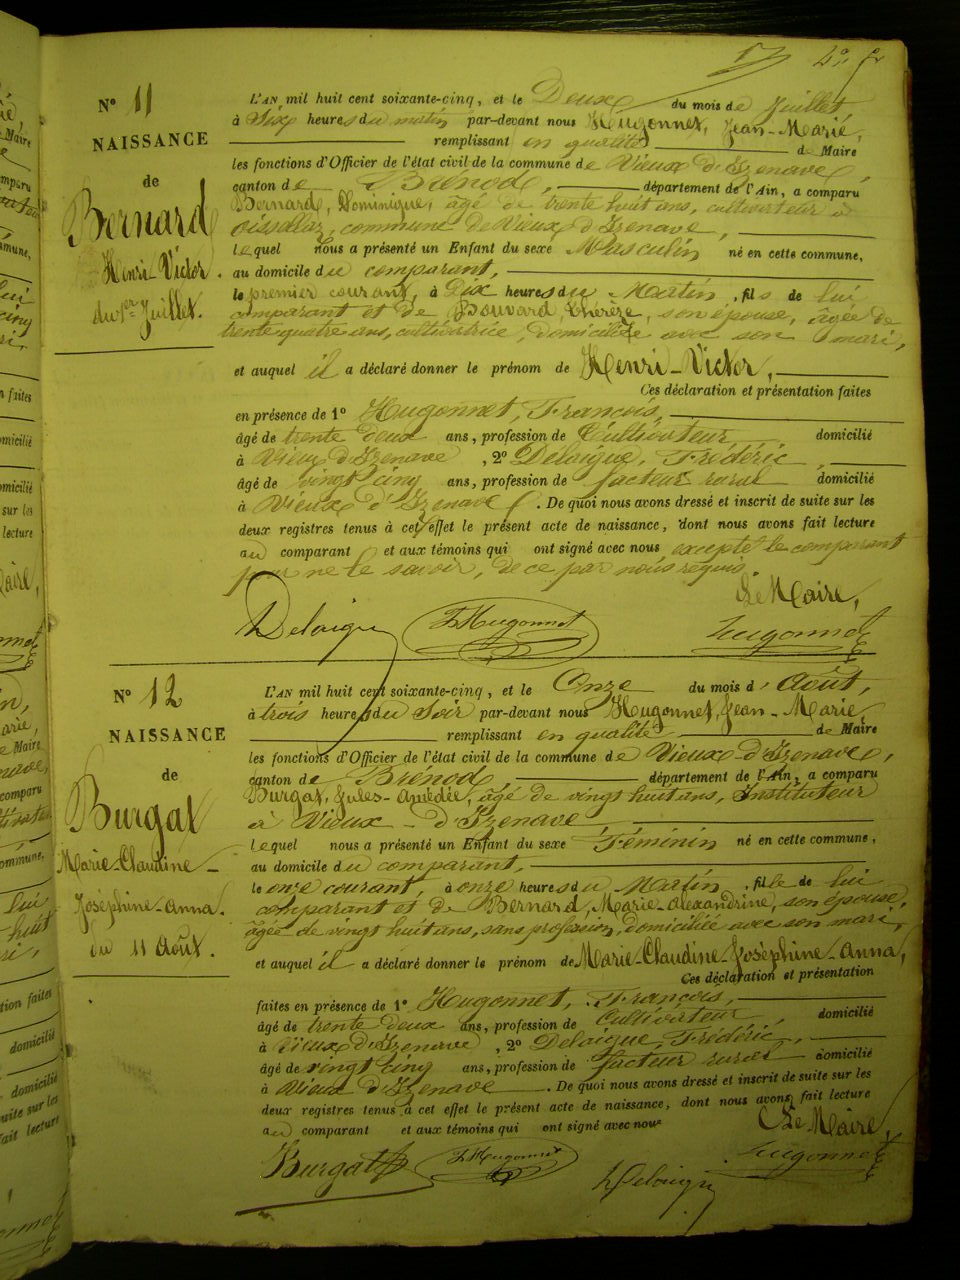 N° 11
NAISSANCE
de
Bernard
Henri-Victor
du 1er Juillet.
L'AN mil huit cent soixante-cinq, et le Deux du mois de Juillet
à Six heures du matin par-devant nous Hugonnet, Jean-Marie,
remplissant en qualité de Maire
les fonctions d'Officier de l'état civil de la commune de Vieux d'Izenave,
canton de Brénod, département de l'Ain, a comparu
Bernard, Dominique, âgé de trente huit ans, cultivateur à
commune de Vieux d'Izenave,
lequel Nous a présenté un Enfant du sexe Masculin né en cette commune,
au domicile du comparant,
le premier courant, à Dix heures du Martin, fils de lui
comparant et de Bouvard, Thérèze, son épouse, âgée de
trente quatre ans, cultivatrice, domiciliée avec son mari,
et auquel il a déclaré donner le prénom de Henri-Victor,
Ces déclaration et présentation faites
en présence de 1° Hugonnet, François,
âgé de trente deux ans, profession de Cultivateur domicilié
à Vieux d'Izenave, 2° Delaigue, Frédéric,
âgé de vingt cinq ans, profession de facteur rural domicilié
à Vieux d'Izenave. De quoi nous avons dressé et inscrit de suite sur les
deux registres tenus à cet effet le présent acte de naissance, dont nous avons fait lecture
au comparant et aux témoins qui ont signé avec nous excepté le comparant
pour ne le savoir, de ce par nous requis.
Le Maire,
Delaigue FHugonnet Hugonnet
N° 12
NAISSANCE
de
Burgat
Marie-Claudine-
Joséphine-Anna.
du 11 Août.
L'AN mil huit cent soixante-cinq, et le Onze du mois d'Août,
à trois heures du Soir par-devant nous Hugonnet, Jean-Marie,
remplissant en qualité de Maire
les fonctions d'Officier de l'état civil de la commune de Vieux-d'Izenave,
canton de Brénod, département de l'Ain, a comparu
Burgat, Jules-Amédée, âgé de vingt huit ans, Instituteur
à Vieux-d'Izenave
lequel nous a présenté un Enfant du sexe Féminin né en cette commune,
au domicile du comparant,
le onze courant, à onze heures du Martin, fille de lui
comparant et de Bernard, Marie-Alexandrine, son épouse,
âgée de vingt huit ans, sans profession, domiciliée avec son mari,
et auquel il a déclaré donner le prénom de Marie-Claudine-Joséphine-Anna,
Ces déclaration et présentation
faites en présence de 1° Hugonnet, François,
âgé de trente deux ans, profession de Cultivateur domicilié
à Vieux d'Izenave, 2° Delaigue, Frédéric,
âgé de vingt cinq ans, profession de facteur rural domicilié
à Vieux d'Izenave. De quoi nous avons dressé et inscrit de suite sur les
deux registres tenus à cet effet le présent acte de naissance, dont nous avons fait lecture
au comparant et aux témoins qui ont signé avec nous
Le Maire,
Burgat FHugonnet Hugonnet
Delaigue